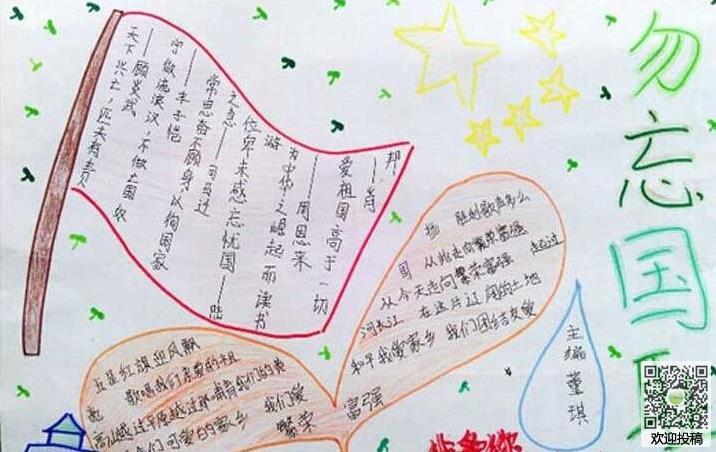 勿忘国
天下兴亡,匹夫有责
——顾炎武
宁做流浪汉,不做亡国奴
——丰子恺
常思奋不顾身以徇国家
之急——司马迁
位卑未感忘忧国——陆
游
为中华之崛起而读书
——周恩来
爱祖国高于一切
——肖
邦
五星红旗迎风飘
歌唱我们亲爱的祖
高山越过平原越过那哺育我们的黄
们可爱的家乡 我们爱
扬 胜利歌声多么
国 从此走向繁荣富强
从今天走向繁荣富强 越过
河长江 在这片辽阔的土地
和平我爱家乡 我们团结友爱
繁荣 富强
主编董琪
欢迎投稿